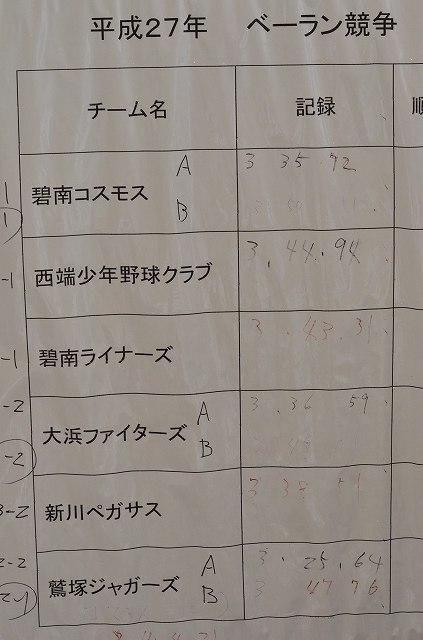 平成27年 ベーラン競争
チーム名 記録 順
1 碧南コスモス A 3 35 72
1 B
-1 西端少年野球クラブ 3.44.94
-1 碧南ライナーズ 3.43.31
-2 大浜ファイターズ A 3.36 59
-2 B
3-2 新川ペガサス 3 38 51
2-2 鷲塚ジャガーズ A 3.25.64
B 3 47 76